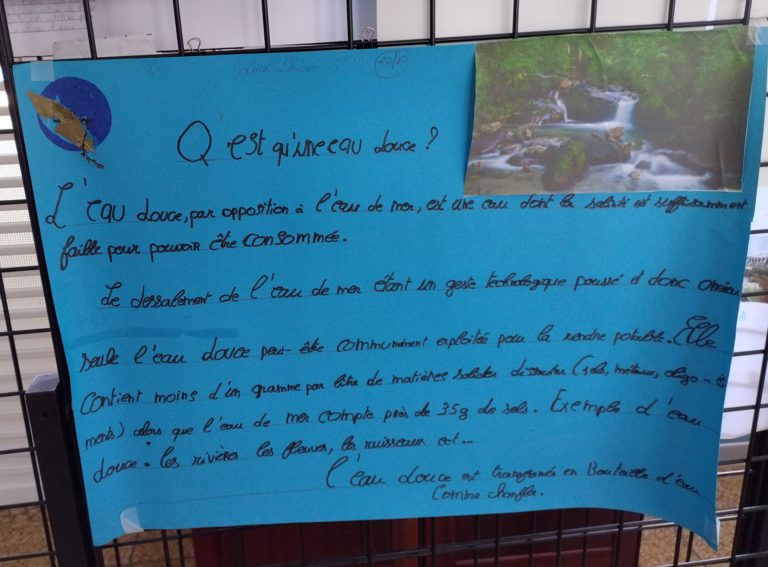 20/20
Q'est qu'une eau douce ?
L'eau douce, par opposition à l'eau de mer, est une eau dont la salinité est suffisamment
faible pour pouvoir être consommée.
Le dessalement de l'eau de mer étant un geste technologique poussé et donc onéreux
seule l'eau douce peut être communément exploitée pour la rendre potable. Elle
contient moins d'un gramme par litre de matières solides dissoutes (sels, métaux, oligo-élé
ments) alors que l'eau de mer compte près de 35g de sels. Exemple d'eau
douce : les rivières les fleuves, les ruisseaux ect...
L'eau douce est transformée en Bouteille d'eau
Comme